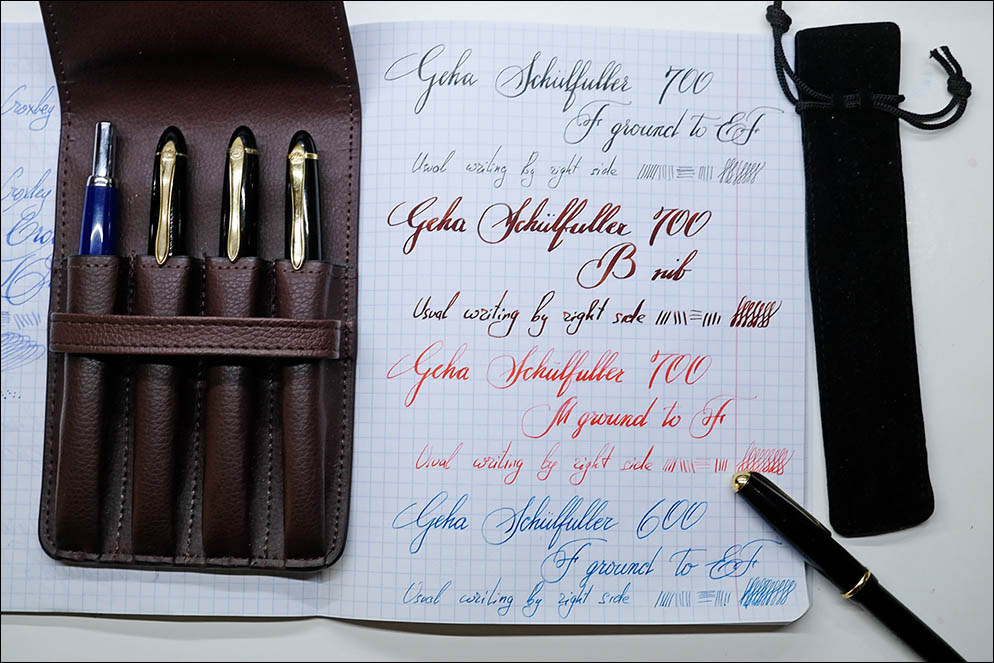 Croxley
Croxley
Geha Schülfuller 700
F ground to EF
Usual writing by right side
Geha Schülfuller 700
B nib
Usual writing by right side
Geha Schülfuller 700
M ground to F
Usual writing by right side
Geha Schülfuller 600
F ground to EF
Usual writing by right side